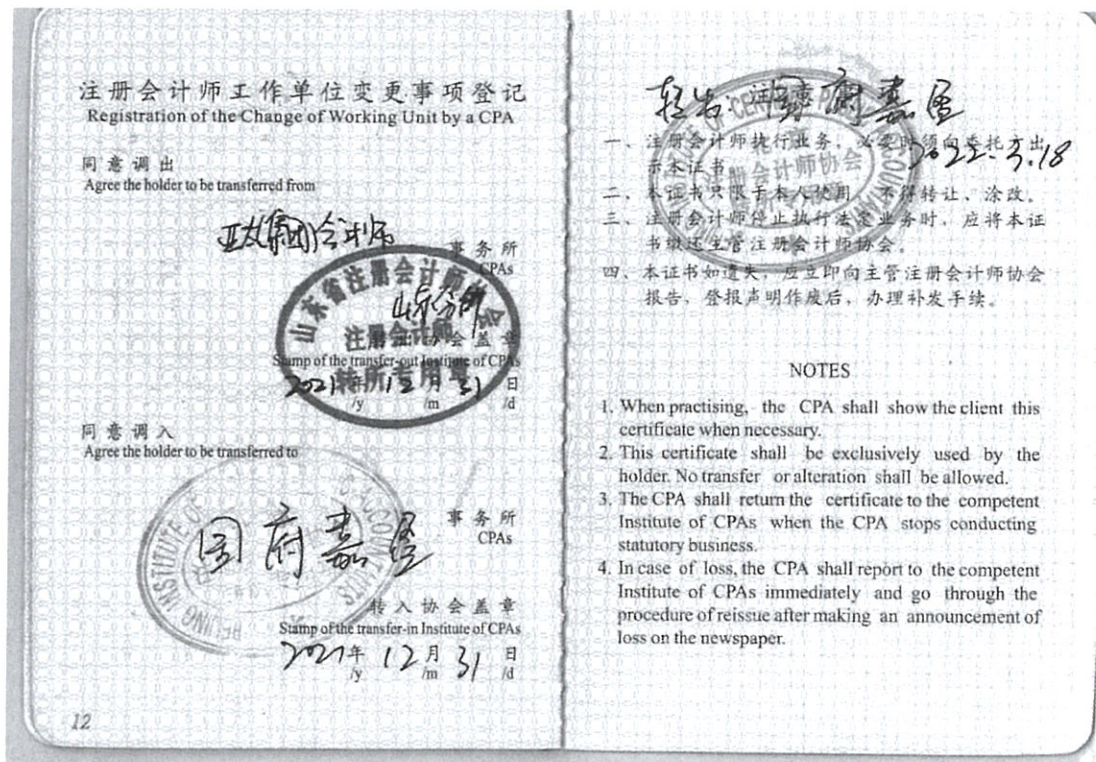 注册会计师工作单位变更事项登记
Registration of the Change of Working Unit by a CPA
同意调出
Agree the holder to be transferred from
亚太集团会计师
事务所
CPAs
山东分所
山东省注册会计师协会
注册会计师
转所专用章
会盖章
Stamp of the transfer-out Institute of CPAs
2021年12月31日
/y /m /d
同意调入
Agree the holder to be transferred to
国府嘉盈
事务所
CPAs
BEIJING INSTITUTE OF
转入协会盖章
Stamp of the transfer-in Institute of CPAs
2021年12月31日
/y /m /d
12
国府嘉盈
2022.3.18
注册会计师协会
一、注册会计师执行业务,必要时须向委托方出
示本证书。
二、本证书只限于本人使用,不得转让、涂改。
三、注册会计师停止执行法定业务时,应将本证
书缴还主管注册会计师协会。
四、本证书如遗失,应立即向主管注册会计师协会
报告,登报声明作废后,办理补发手续。
NOTES
1. When practising, the CPA shall show the client this
certificate when necessary.
2. This certificate shall be exclusively used by the
holder. No transfer or alteration shall be allowed.
3. The CPA shall return the certificate to the competent
Institute of CPAs when the CPA stops conducting
statutory business.
4. In case of loss, the CPA shall report to the competent
Institute of CPAs immediately and go through the
procedure of reissue after making an announcement of
loss on the newspaper.